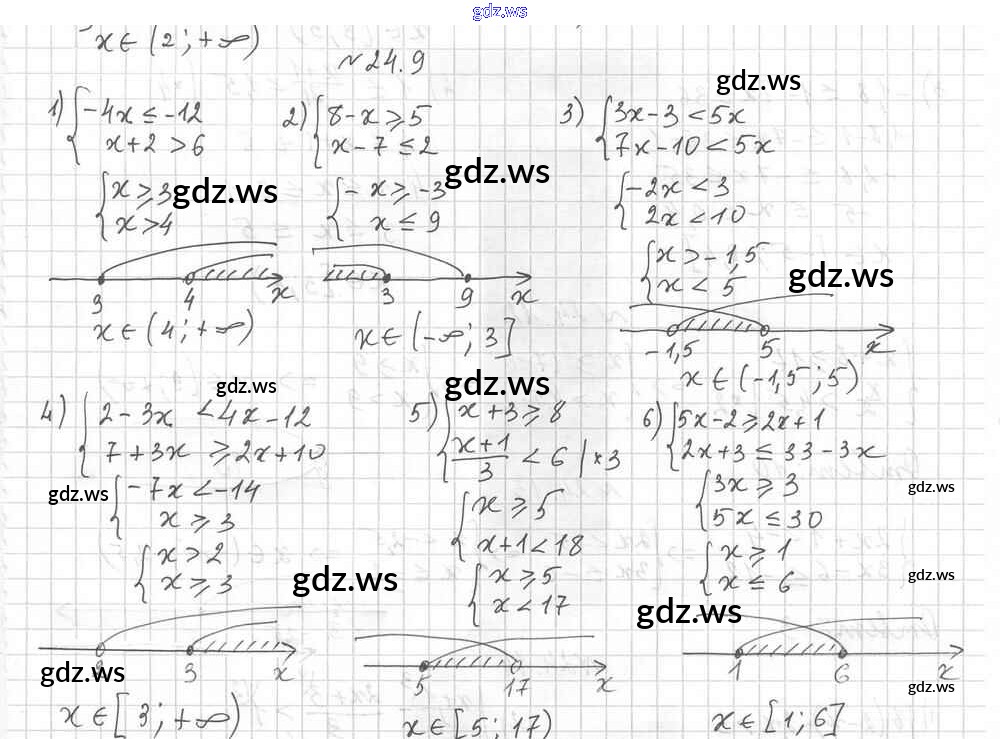 gdz.ws
x ∈ (2; +∞)
№24.9
gdz.ws
1) { -4x ≤ -12
x+2 > 6
{ x ≥ 3
x > 4
gdz.ws
3 4 x
x ∈ (4; +∞)
2) { 8-x ≥ 5
x-7 ≤ 2
gdz.ws
{ -x ≥ -3
x ≤ 9
3 9 x
x ∈ (-∞; 3]
3) { 3x-3 < 5x
7x-10 < 5x
{ -2x < 3
2x < 10
{ x > -1,5
x < 5
gdz.ws
-1,5 5 x
x ∈ (-1,5; 5)
gdz.ws
4) { 2-3x < 4x-12
7+3x ≥ 2x+10
gdz.ws
{ -7x < -14
x ≥ 3
{ x > 2
x ≥ 3
gdz.ws
2 3 x
gdz.ws
x ∈ [3; +∞)
gdz.ws
5) { x+3 ≥ 8
x+1/3 < 6 | *3
{ x ≥ 5
x+1 < 18
{ x ≥ 5
x < 17
5 17 x
x ∈ [5; 17)
6) { 5x-2 ≥ 2x+1
2x+3 ≤ 33-3x
gdz.ws
{ 3x ≥ 3
5x ≤ 30
{ x ≥ 1
x ≤ 6
gdz.ws
gdz.ws
1 6 x
gdz.ws
x ∈ [1; 6]